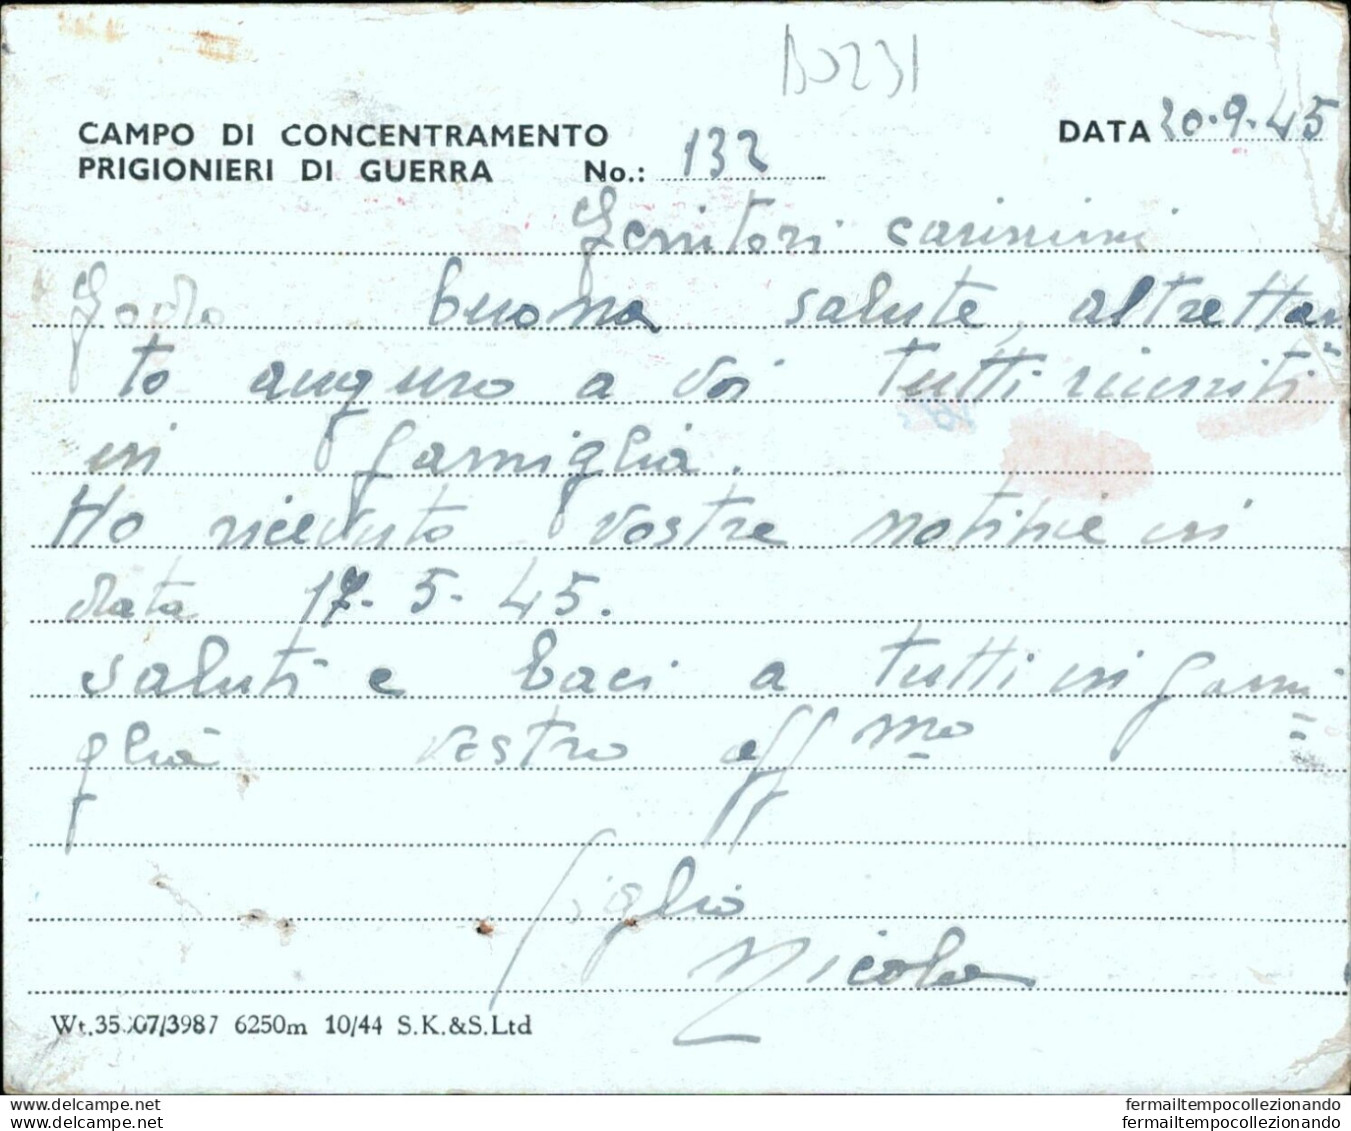 B0231
CAMPO DI CONCENTRAMENTO
PRIGIONIERI DI GUERRA No.: 132
DATA 20-9-45
Genitori carissimi
Godo buona salute, altrettan=
to auguro a voi tutti riuniti
in famiglia.
Ho ricevuto vostre notizie in
data 17-5-45.
saluti e baci a tutti in fami=
glia vostro aff mo
figlio
Nicola
Wt.35107/3987 6250m 10/44 S.K.&S.Ltd
fermailtempocollezionando
fermailtempocollezionando